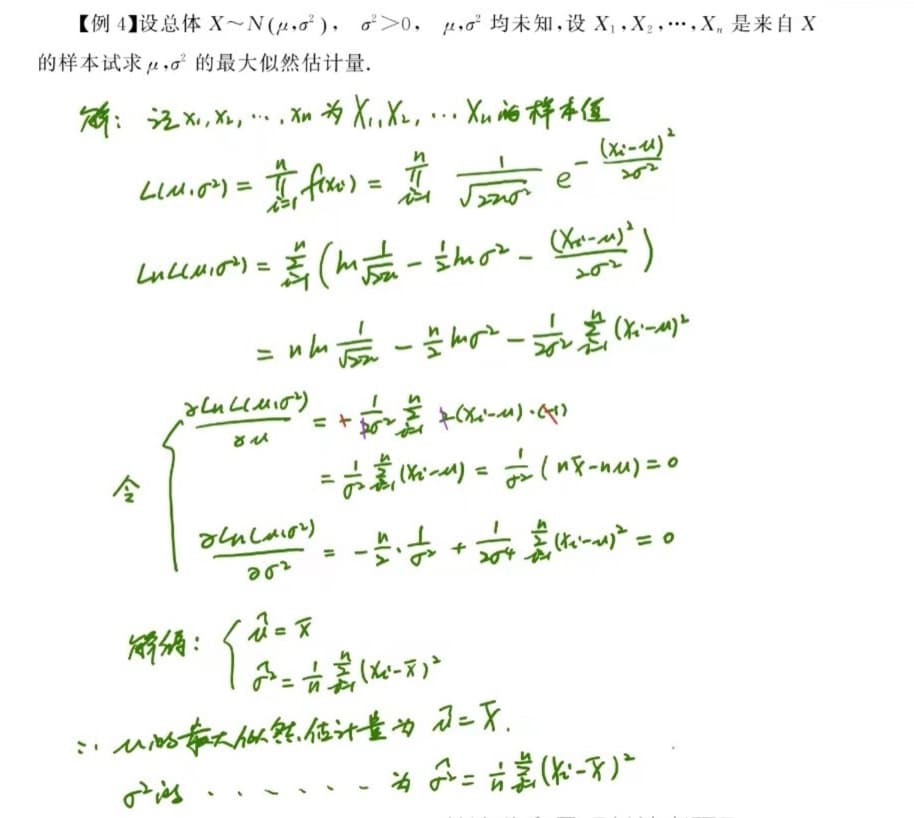 【例 4】设总体 X~N(μ,σ²), σ²>0, μ,σ² 均未知,设 X₁,X₂,⋯,Xₙ 是来自 X
的样本试求 μ,σ² 的最大似然估计量.
解: 记 x₁,x₂,⋯,xₙ 为 X₁,X₂,⋯Xₙ 的样本值
L(μ,σ²) = ∏ᵢ₌₁ⁿ f(xᵢ) = ∏ᵢ₌₁ⁿ 1/√(2πσ²) e^(-(xᵢ-μ)²/2σ²)
lnL(μ,σ²) = ∑ᵢ₌₁ⁿ (ln 1/√(2π) - 1/2 lnσ² - (xᵢ-μ)²/2σ²)
= n ln 1/√(2π) - n/2 lnσ² - 1/2σ² ∑ᵢ₌₁ⁿ (xᵢ-μ)²
令 { ∂lnL(μ,σ²)/∂μ = + 1/2σ² ∑ᵢ₌₁ⁿ 2(xᵢ-μ)·(-1)
= 1/σ² ∑ᵢ₌₁ⁿ (xᵢ-μ) = 1/σ² (nx̄-nμ) = 0
∂ln(μ,σ²)/∂σ² = -n/2·1/σ² + 1/2σ⁴ ∑ᵢ₌₁ⁿ (xᵢ-μ)² = 0
解得: { μ̂ = x̄
σ̂² = 1/n ∑ᵢ₌₁ⁿ (xᵢ-x̄)²
∴ μ的最大似然估计量为 μ̂ = X̄.
σ²的 · · · · · · · 为 σ̂² = 1/n ∑ᵢ₌₁ⁿ (Xᵢ-X̄)²